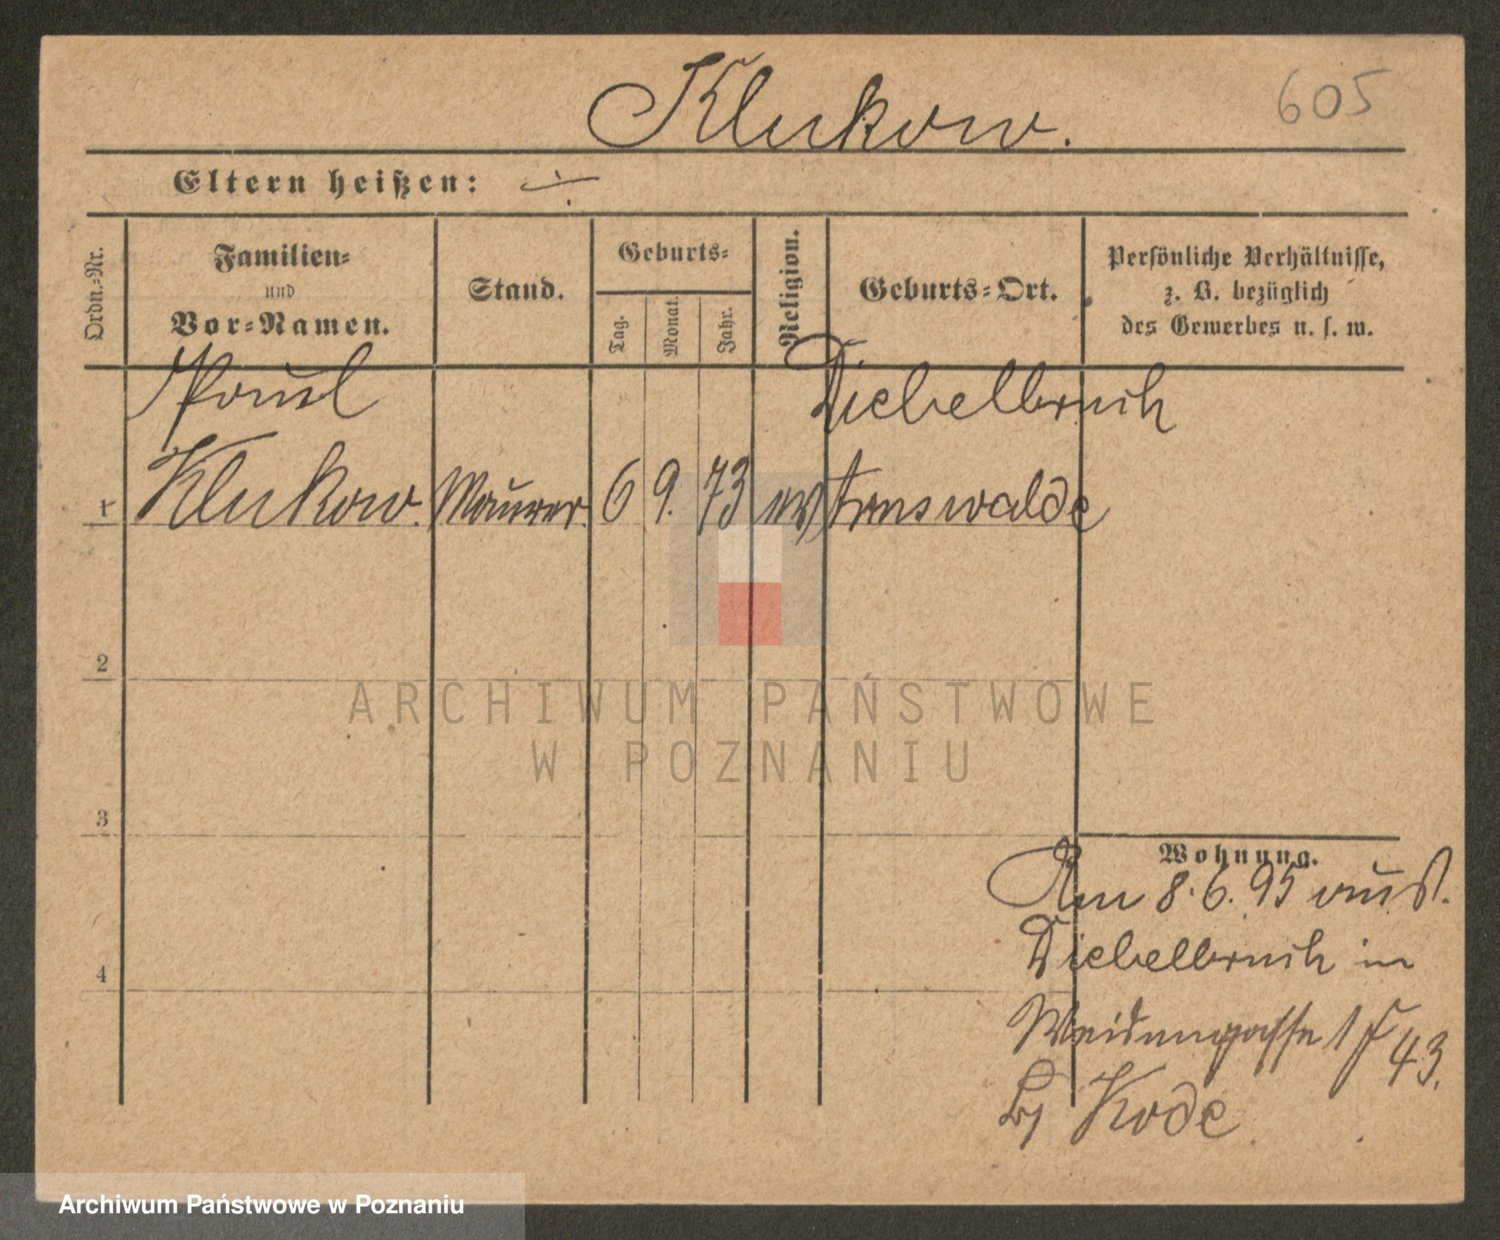 Klukow.
605
Eltern heißen: ÷
Ordn.-Nr.
Familien-
und
Vor-Namen.
Stand.
Geburts-
Tag.
Monat.
Jahr.
Religion.
Geburts-Ort.
Persönliche Verhältnisse,
z. B. bezüglich
des Gewerbes u. s. w.
Paul
Diebelbruch
1 Klukow. Maurer. 6 9. 73 ev Arnswalde
2
3
4
Wohnung.
Am 8.6.95 aus
Diebelbruch in
Weidengasse 1 43.
b/ Kode
ARCHIWUM PAŃSTWOWE
W POZNANIU
Archiwum Państwowe w Poznaniu